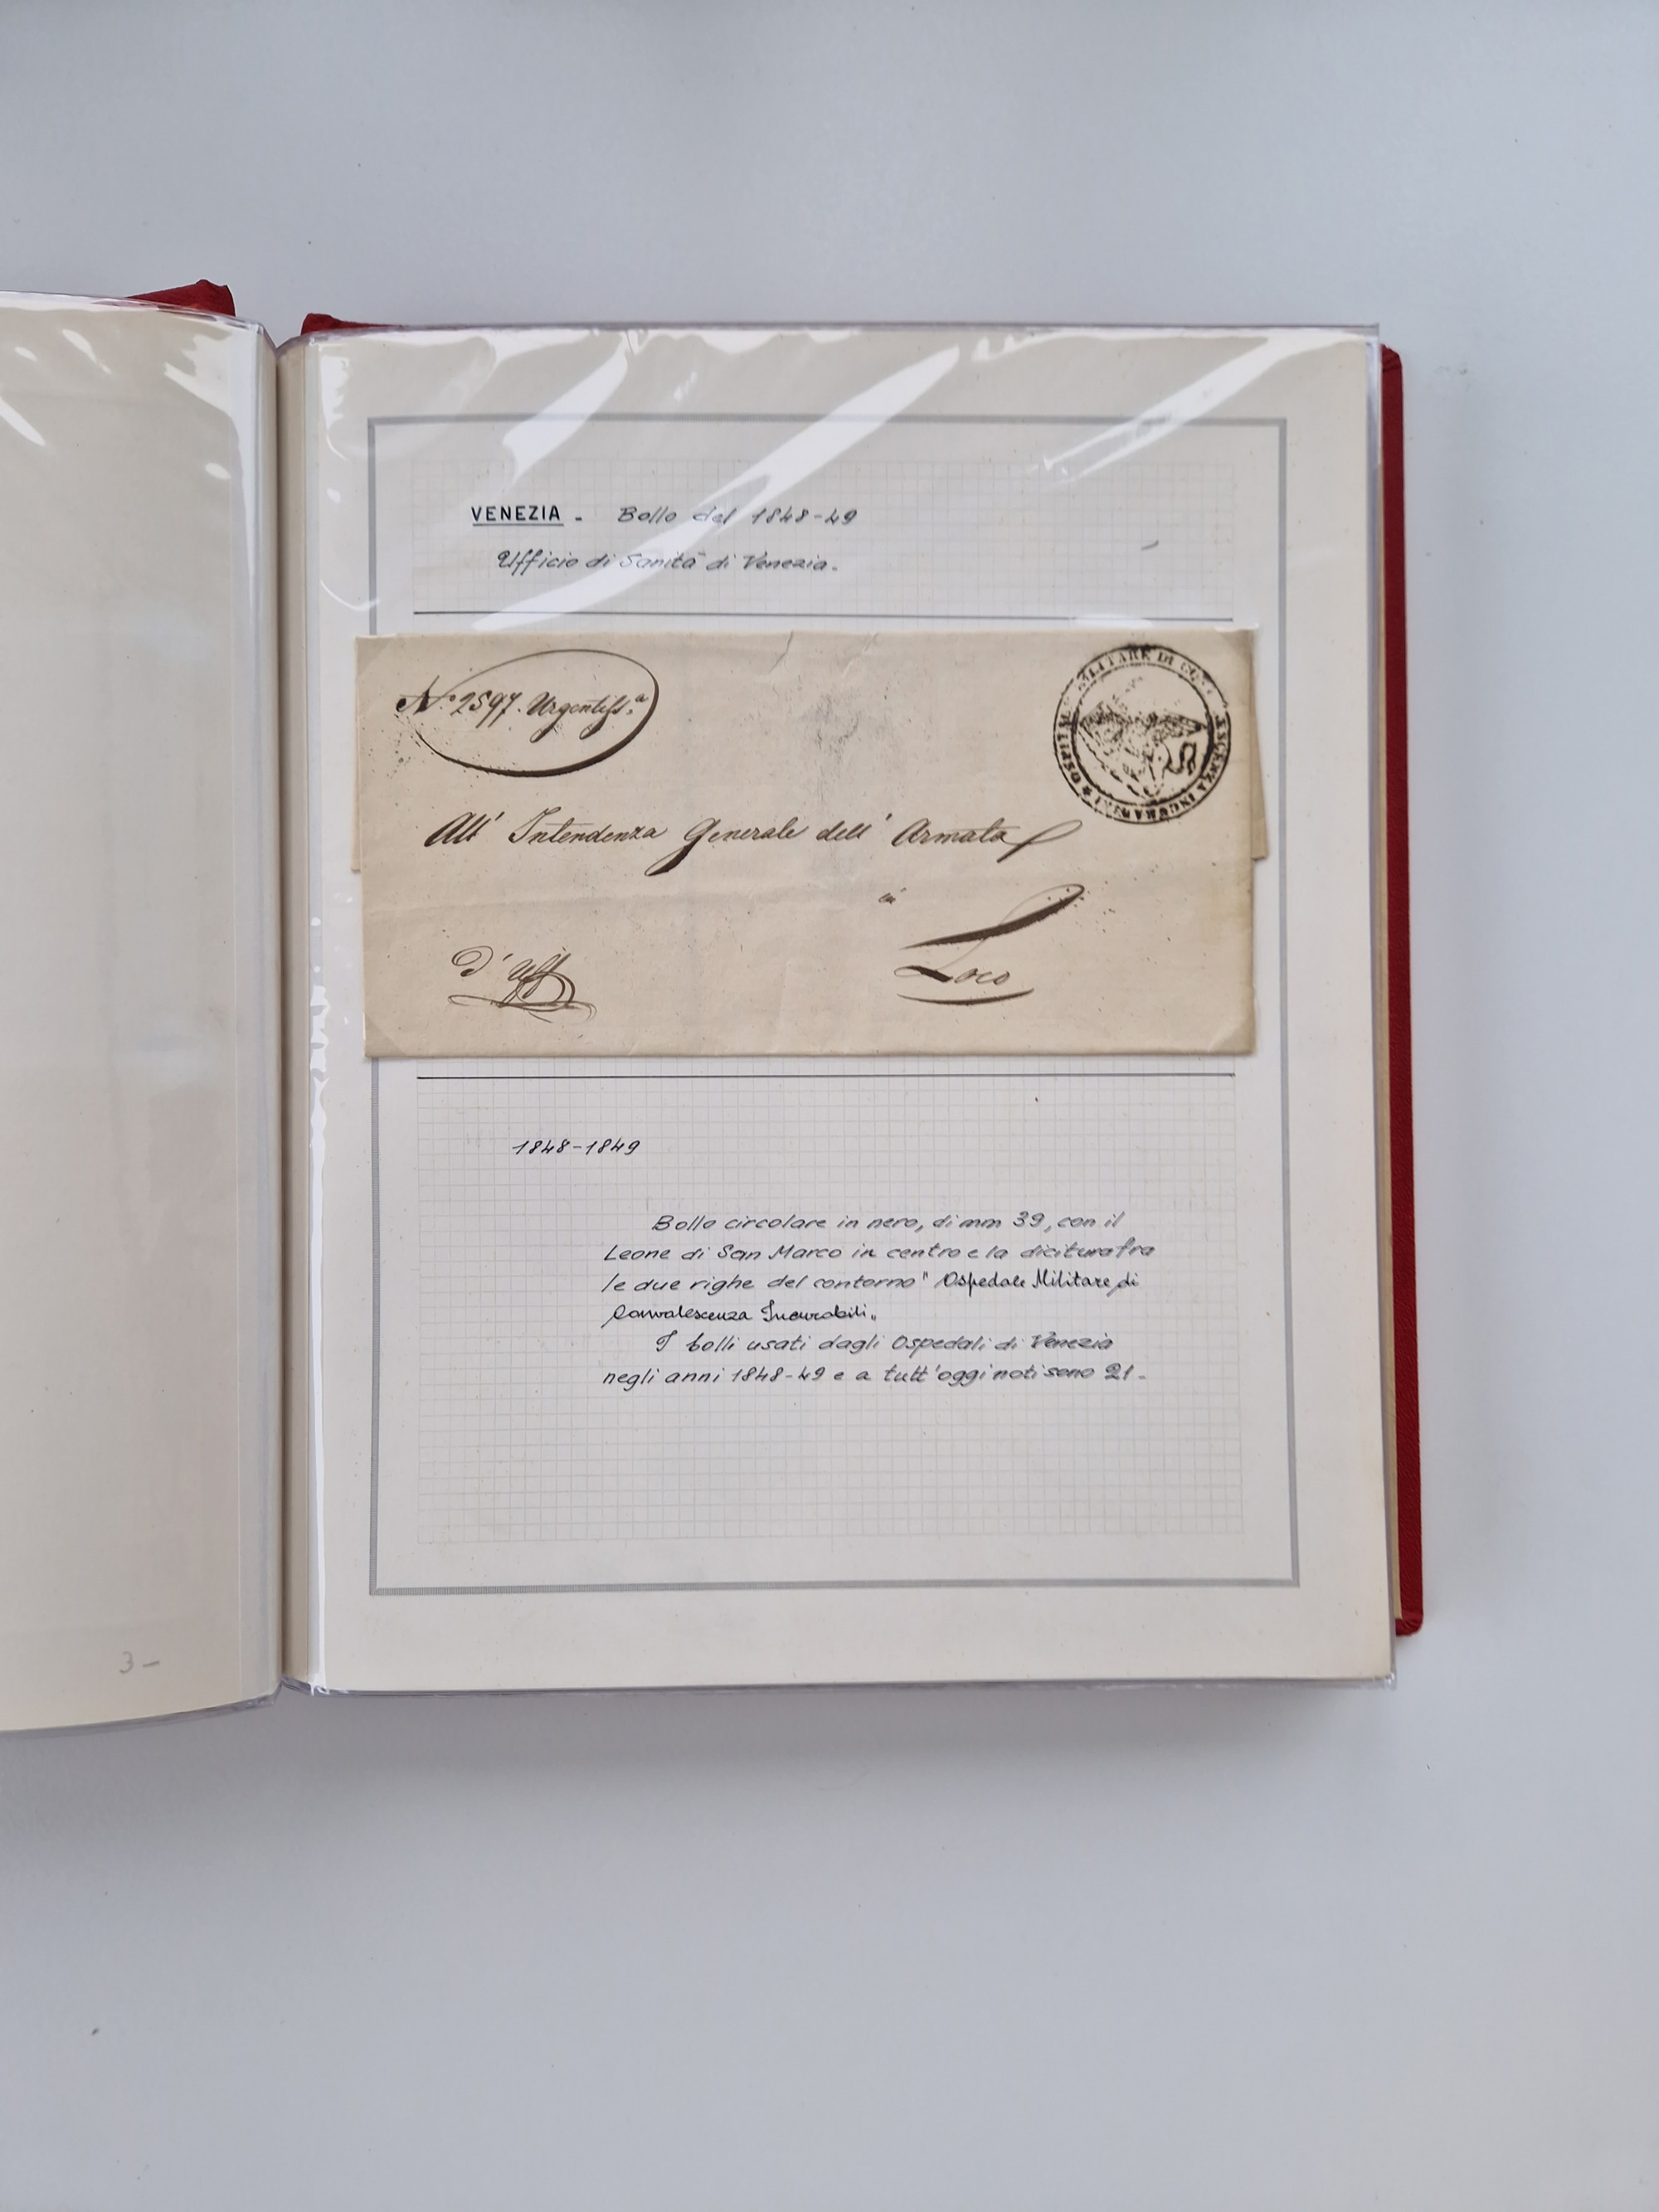 VENEZIA - Bollo del 1848-49
Ufficio di Sanità di Venezia.
N.º 2597. Urgentiss.ª
OSPITALE MILITARE DI CONVALESCENZA INCURABILI
All' Intendenza Generale dell' Armata
in
Loco
D' Uff
1848-1849
Bollo circolare in nero, di mm 39, con il
Leone di San Marco in centro e la dicitura fra
le due righe del contorno " Ospedale Militare di
Convalescenza Incurabili„
I bolli usati dagli Ospedali di Venezia
negli anni 1848-49 e a tutt'oggi noti sono 21-
3-